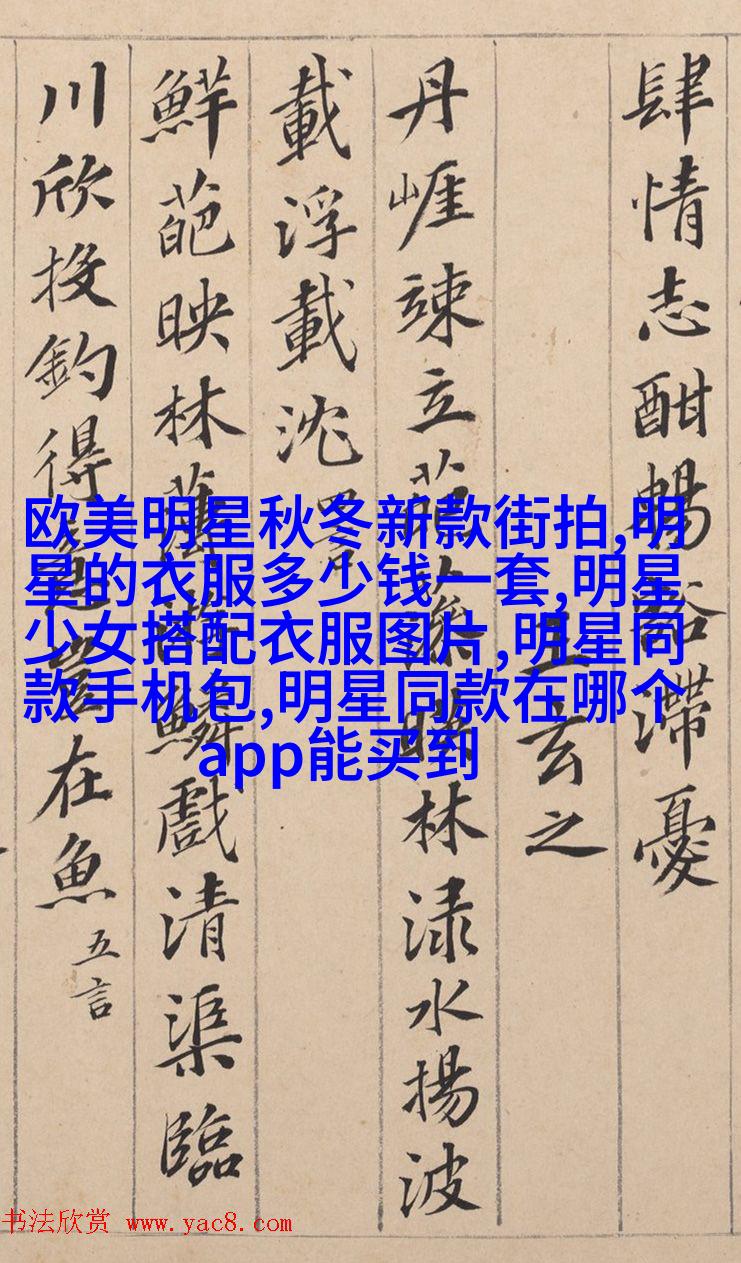 肆情志酣暢豁滯憂
王玄之
丹崕竦立葩藻暎林渌水揚波
載浮載沈
鮮葩映林薄游鱗戲清渠臨
川欣投釣得意豈在魚 五言
欧美明星秋冬新款街拍,明
星的衣服多少钱一套,明星
少女搭配衣服图片,明星同
款手机包,明星同款在哪个
app能买到
书法欣赏 www.yac8.com